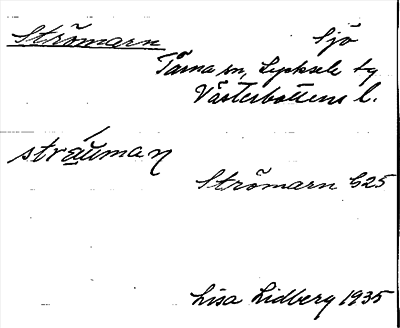 Strömarn Sjö
Tärna sn, Lycksele tg
Västerbottens l.
sträuman
Strömarn G25
Lisa Lidberg 1935